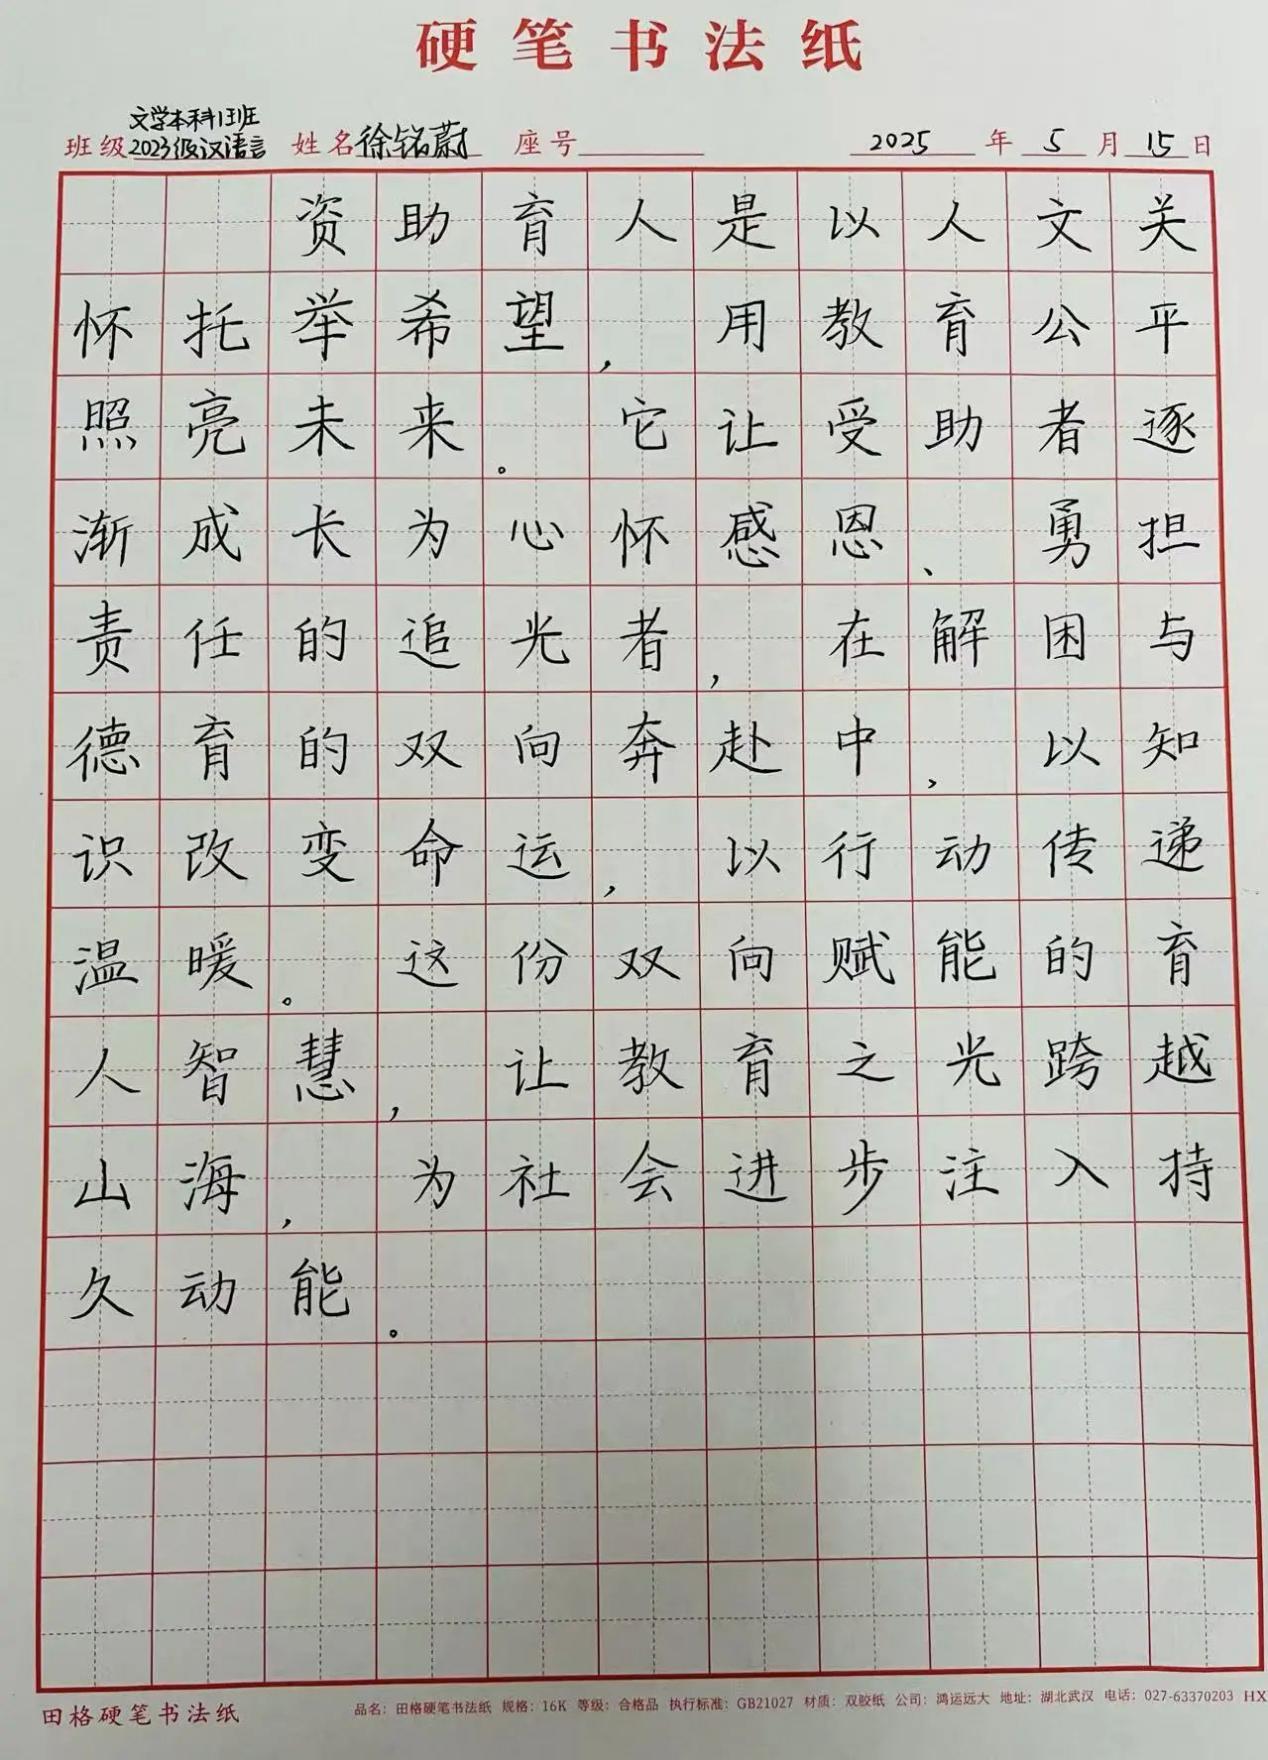 硬笔书法纸
文学本科1班
班级 2023级汉语言 姓名 徐铭蔚 座号 2025 年 5 月 15 日
资助育人是以人文关
怀托举希望，用教育公平
照亮未来。它让受助者逐
渐成长为心怀感恩、勇担
责任的追光者，在解困与
德育的双向奔赴中，以知
识改变命运，以行动传递
温暖。这份双向赋能的育
人智慧，让教育之光跨越
山海，为社会进步注入持
久动能。
田格硬笔书法纸 品名：田格硬笔书法纸 规格：16K 等级：合格品 执行标准：GB21027 材质：双胶纸 公司：鸿运远大 地址：湖北武汉 电话：027-63370203 HX